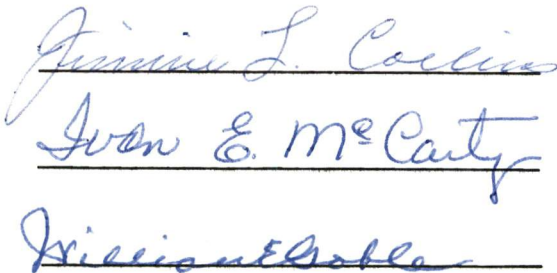 Jimmie L. Collins
Ivan E. McCarty
William E Goble